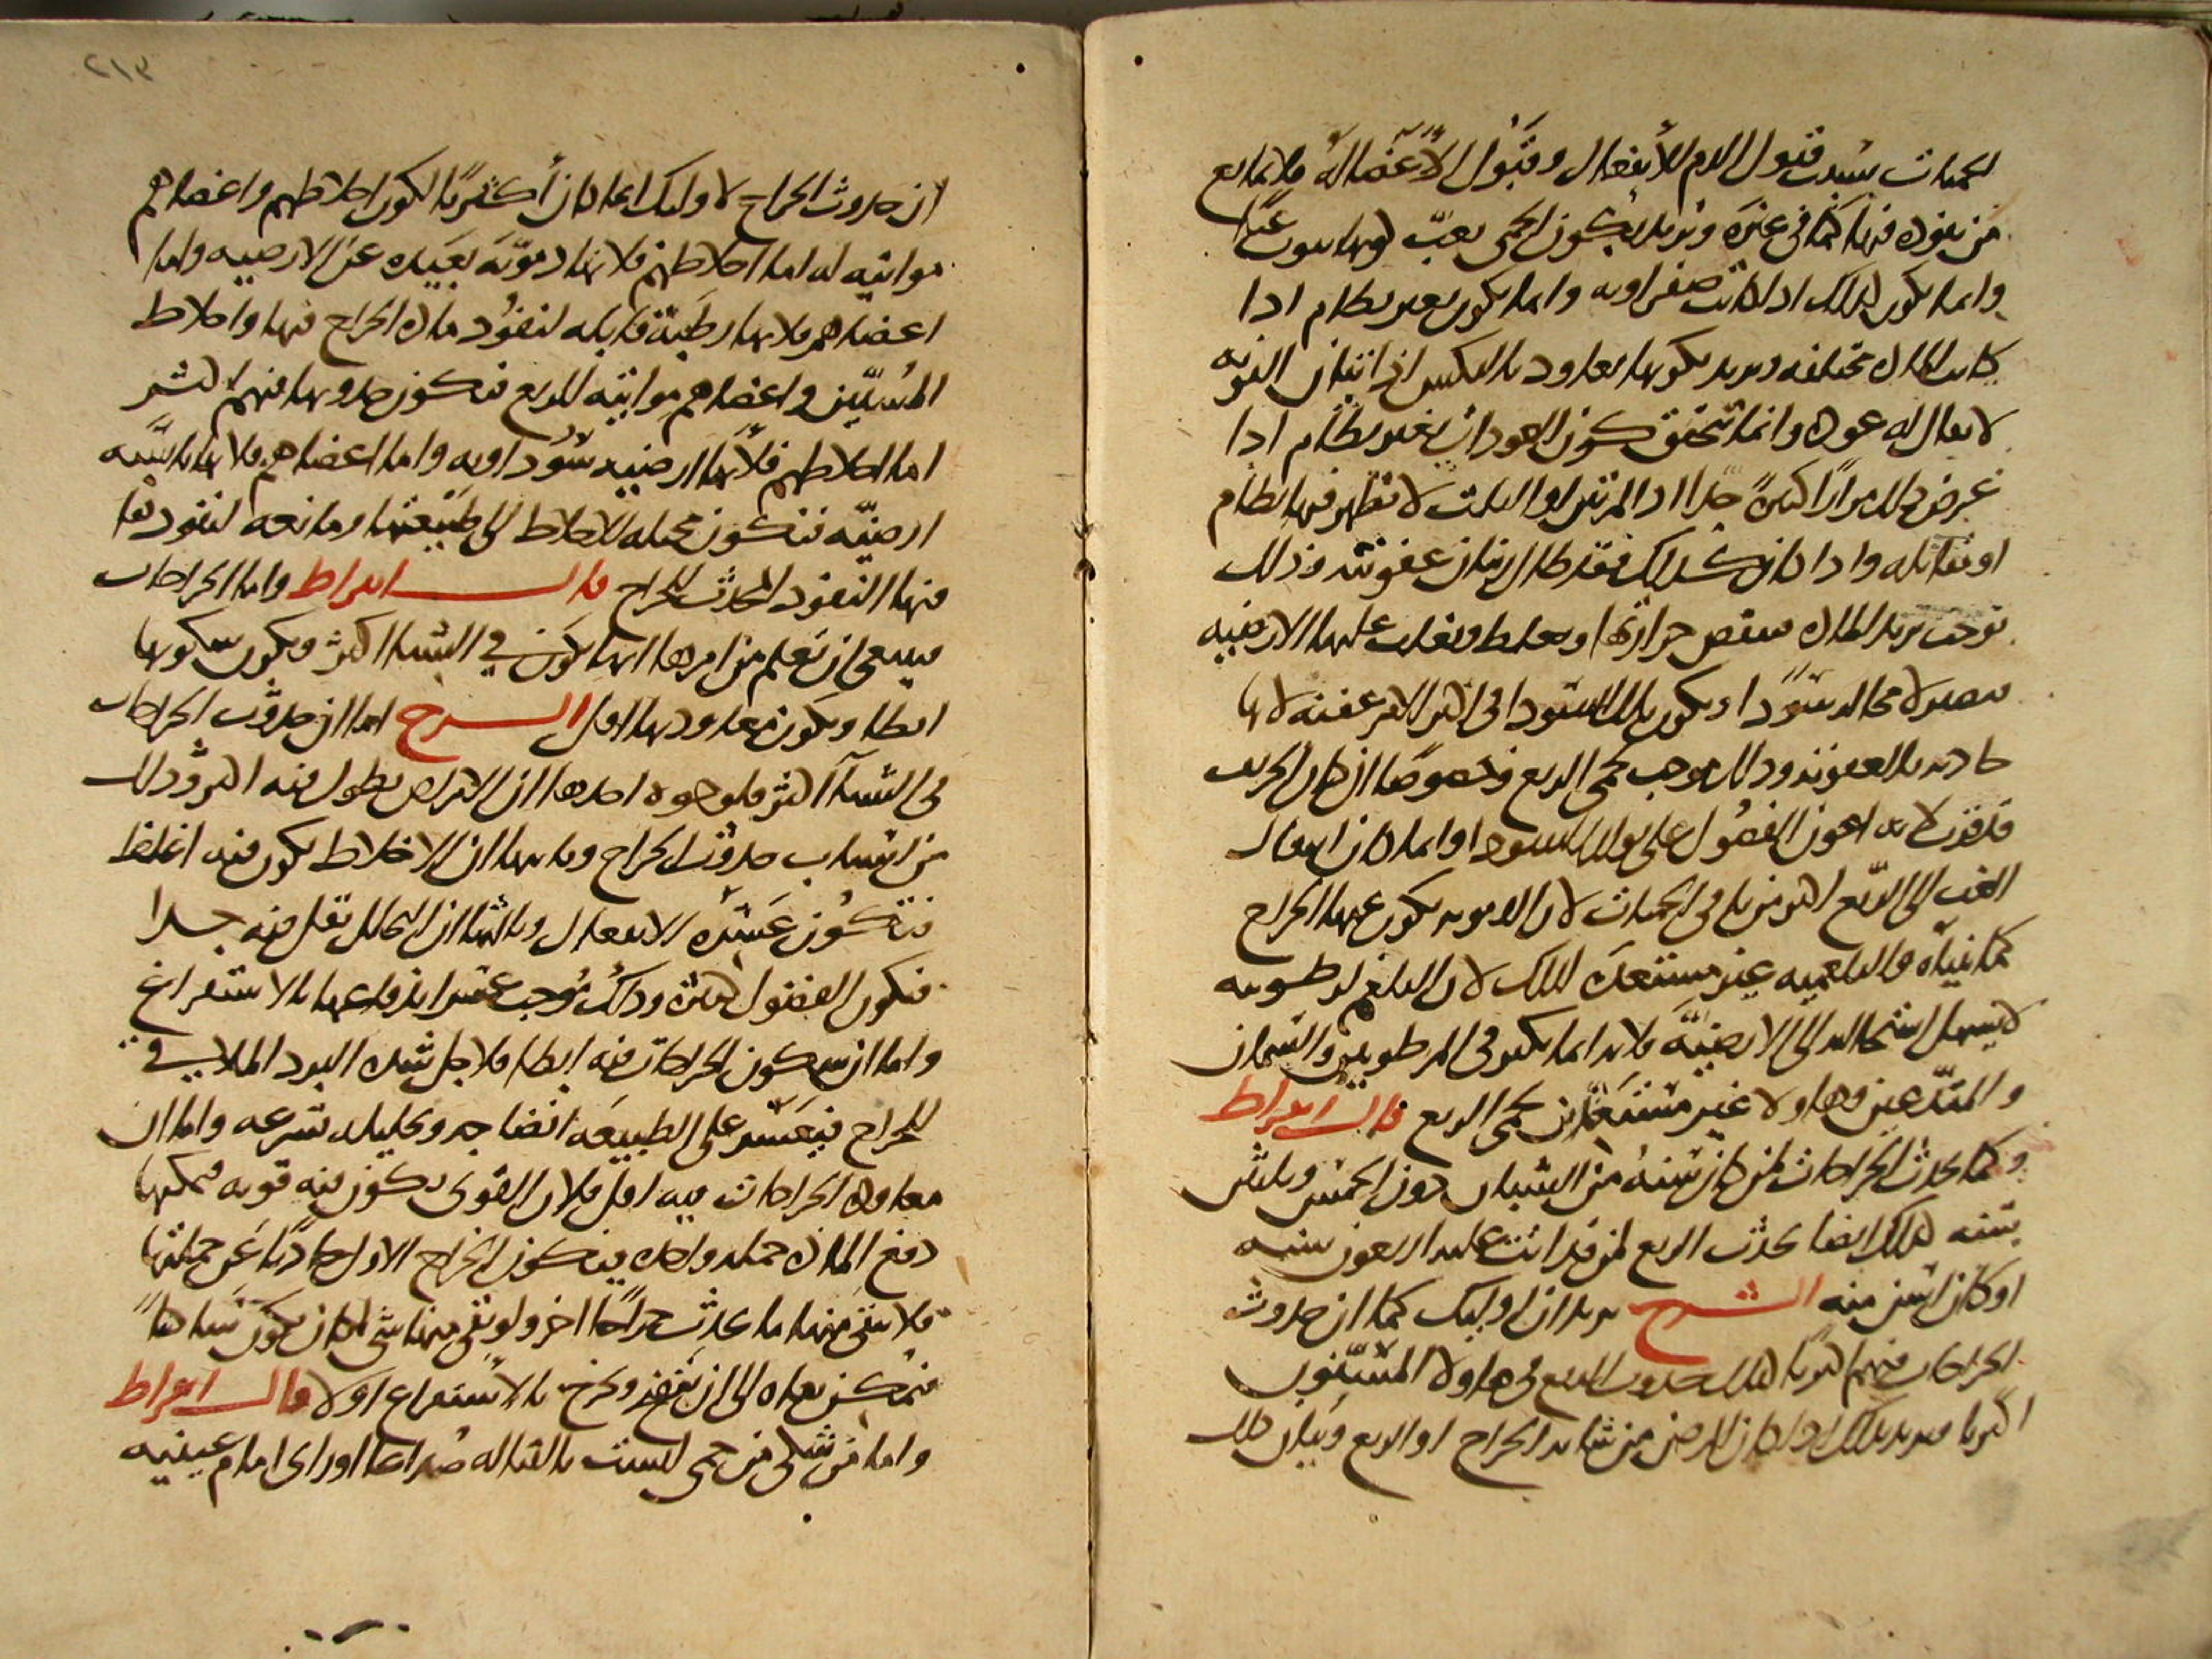 لحميات بسبب قبول الدم للانفعال وقبول الاعضاله فلا مانع
من نفوذه فيها كما فى غيره ويريد بكون الحمى نعت نوبها
وانما يكون كذلك اذا كانت صفراويه وانما يكون بغير نظام اذا
كانت الماده مختلفه ويريد بكونها تعاود بالعكس اذ اتيان النوبه
لا يقال له عوده وانما يتحقق كون العودات بغير نظام اذا
عرض ذلك مرارا كثيرة جدا اذ المرتين او الثلث لا تظهر فيها نظام
او نقائله واذا كان كذلك فقد طال زمان عفونته وذلك
توجب تريد الماده بنقص حرارتها او بغلظ وتغلب عليها الارضيه
فيصير لا محاله سودا ويكون تلك السودا فى اكثر الامر عفنه لانها
حادثه بالعفونه وذلك يوجب حمى الربع وخصوصا ان كان الخريف
قد قرب لانه اعون الفصول على تولد السودا وانما كان انتقال
الغب الى الربع اكثر من باقى الحميات لان الدمويه يكون عنها الخراج
كما بيناه والبلغميه غير مستعده لذلك لان البلغم لرطوبته
لا يسهل استحالته الى الارضيه فلانه انما يكثر فى المرطوبين والسمان
والمتدعين وهاولا غير مستعدين لحمى الربع قال ابقراط
وكما يحدث الخراجات لمن كان سنه من الشباب دون الخمس وثلثين
سنه كذلك ايضا يحدث الربع لمن قد اتت عليه اربعون سنه
او كان اسن منه الشرح يريد ان اوليك كما ان حدوث
الخراجات فيهم اكثريا كذلك حدوث الربع فى هاولا المسنين
اكثريا ويريد بذلك اذا كان المرض من شانه الخراج او الربع وبيان ذلك
٢١٣
ان حدوث الخراج لاوليك انما كان اكثريا لكون اخلاطهم واعضاهم
مواتيه له اما اخلاطهم فلانها دمويه بعيده عن الارضيه واما
اعضاهم فلانها رطبة قابله لنفوذ ماده الخراج فيها واخلاط
المسنين واعضاهم مواتيه للربع فتكون حدوثها فيهم اكثر
اما اخلاطهم فلانها ارضيه سوداويه واما اعضاهم فلانها يابسه
ارضيه فتكون محيله للاخلاط الى طبيعتها ومانعه لنفوذها
فيها النفوذ المحدث للخراج قال ابقراط واما الخراجات
فينبغى ان تعلم من امرها انها تكون فى الشتا اكثر ويكون سكونها
ابطا ويكون معاودتها اقل الشرح اما ان حدوث الخراجات
فى الشتا اكثر فلوجوه احدها ان الامراض يطول فيه اكثر وذلك
من اسباب حدوث الخراج وثانيها ان الاخلاط يكون فيه اغلظ
فتكون عسره الانفعال وثالثها ان التحلل يقل فيه جدا
فتكون الفضول كثيره وذلك موجب عسر اندفاعها بالاستفراغ
واما ان سكون الخراجات فيه ابطا فلاجل شده البرد الملاقى
للخراج فيعسر على الطبيعه انضاجه وتحليله بسرعه واما ان
معاوده الخراجات فيه اقل فلان القوى تكون فيه قويه فيمكنها
دفع الماده جمله واحده فيكون الخراج الاول حادثا عن جملتها
فلا يبقى منها ما يحدث خراجا اخر ولو بقى منها شى لكان يكون
فيمكن بقاه الى ان ينضج ويخرج بالاستفراغ اولا قال ابقراط
واما من شكى من حمى ليست بالقتاله صداعا او راى امام عينيه